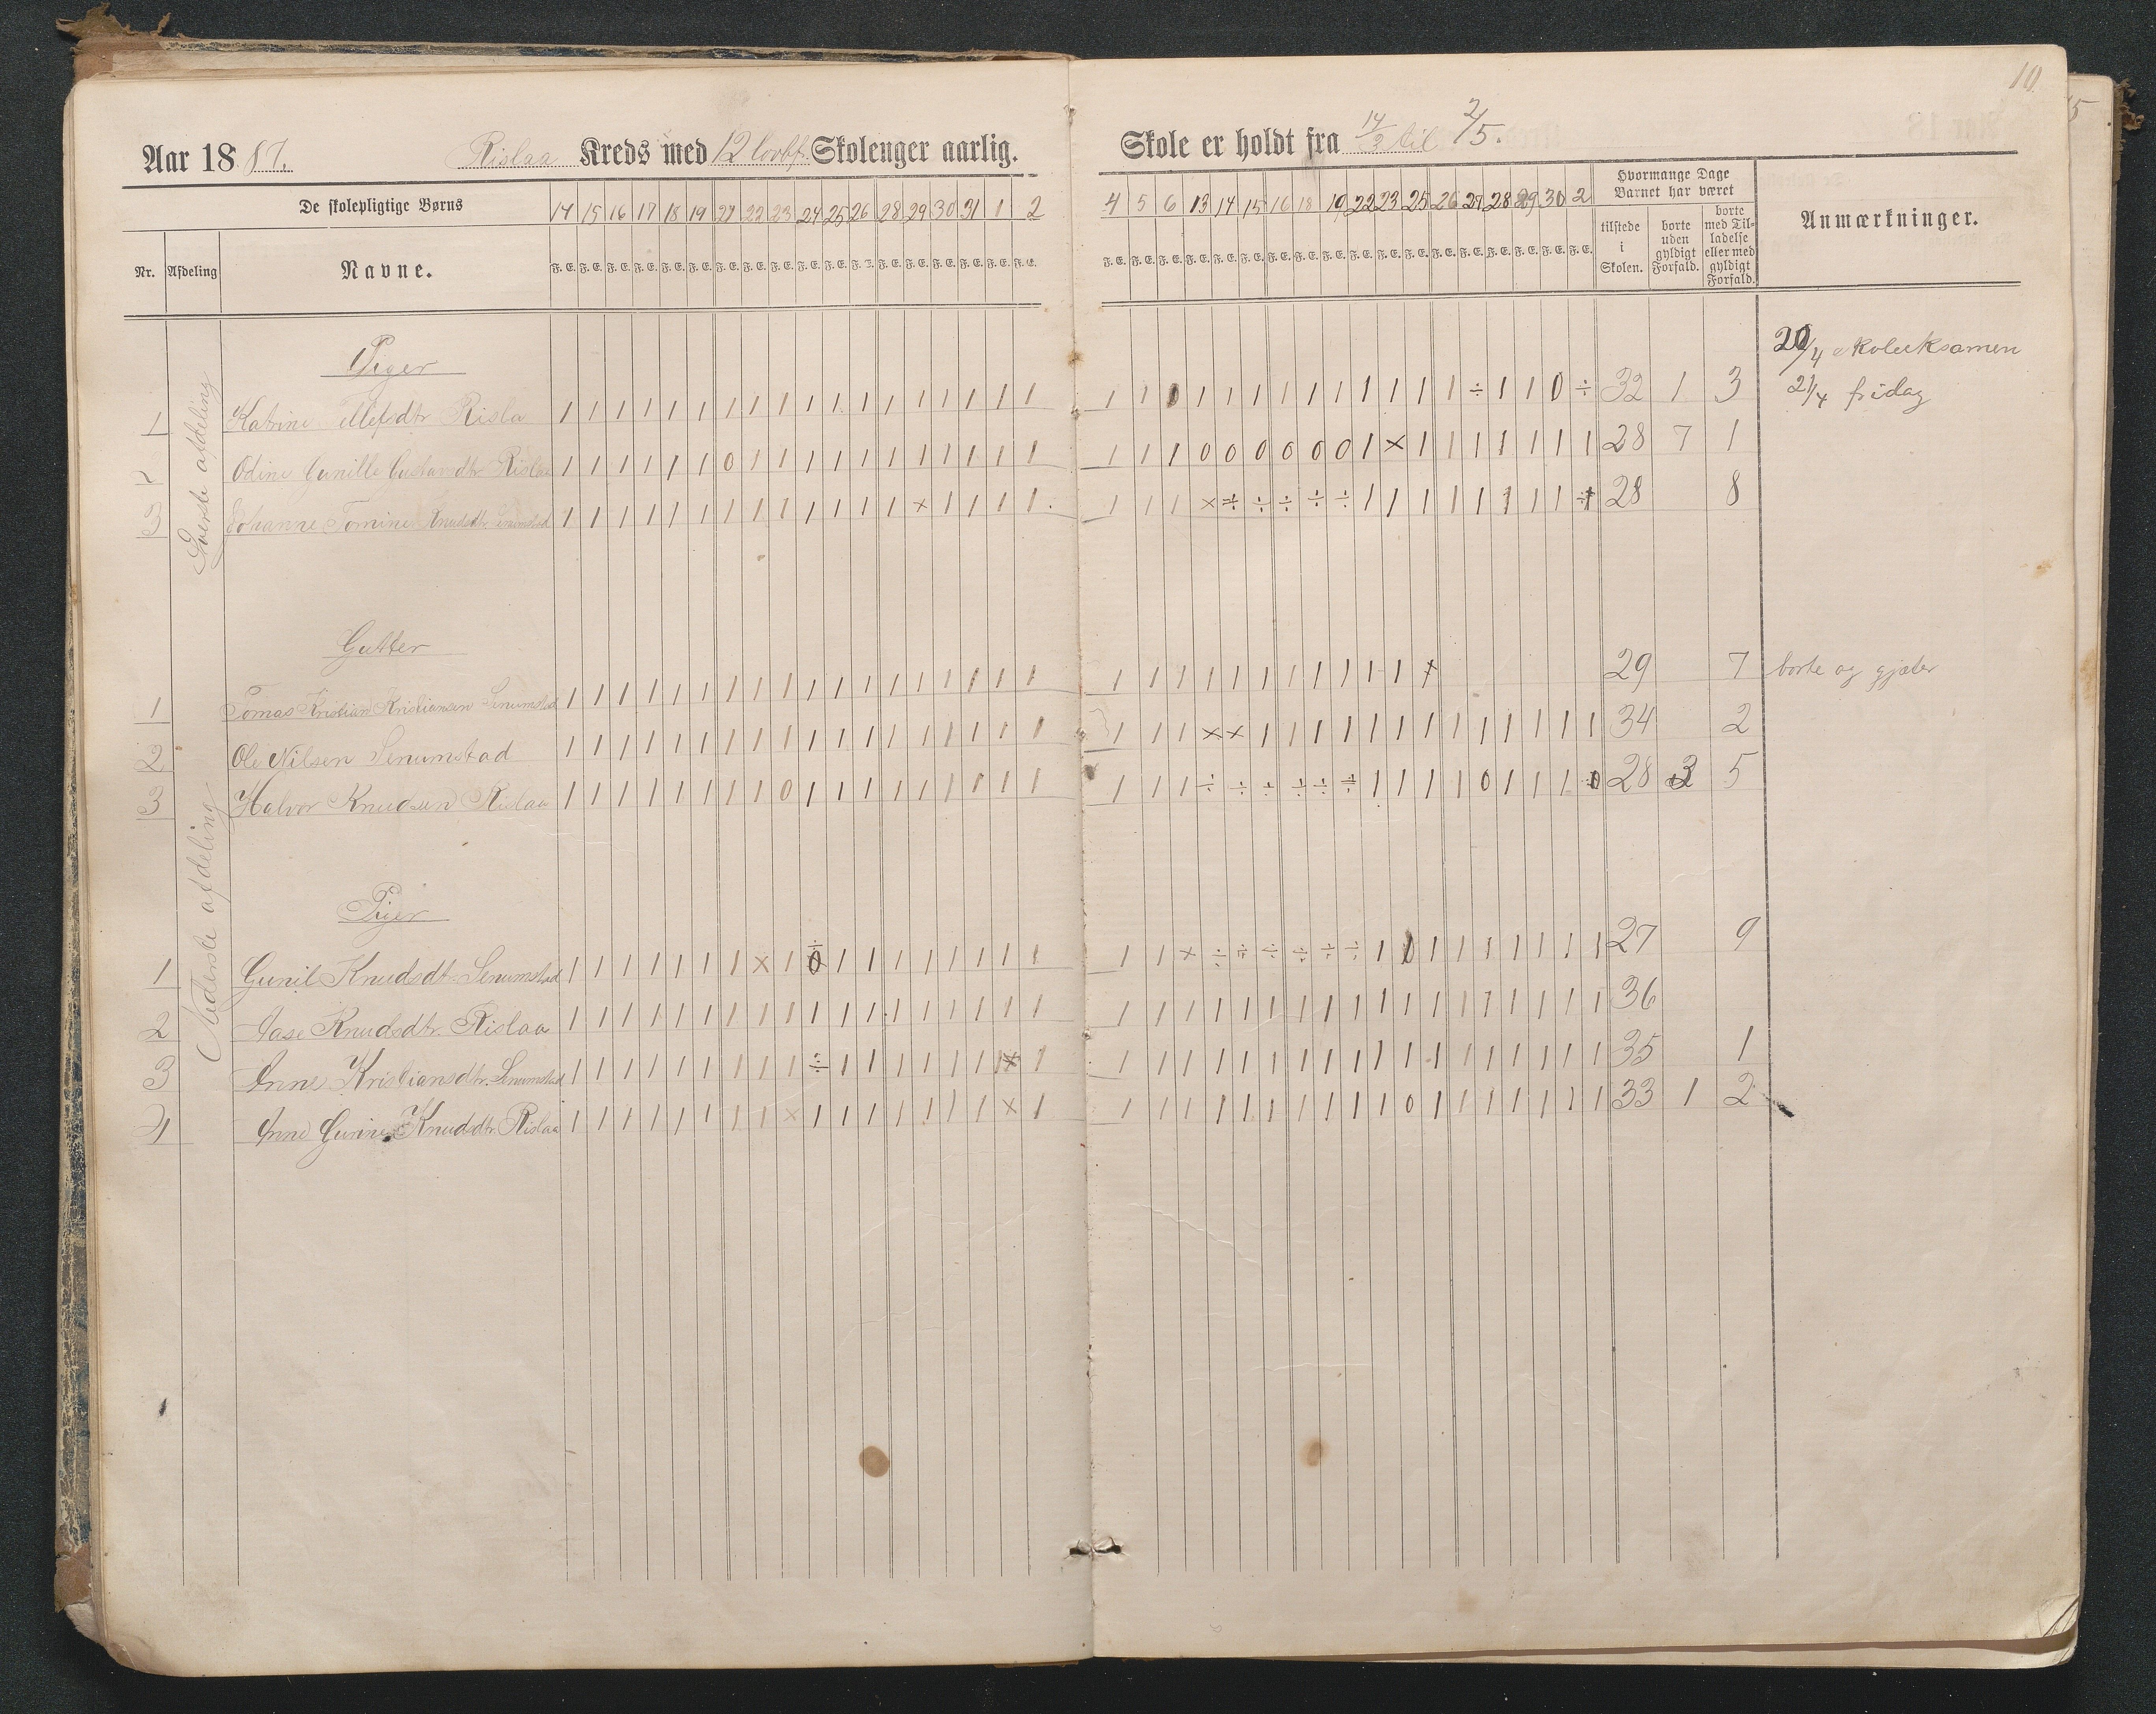 10
Aar 1887. Rislaa Kreds med 12 Skoleuger aarlig. Skole er holdt fra 14/3 til 2/5.
De skolepligtige Børns 14 15 16 17 18 19 21 22 23 24 25 26 28 29 30 31 1 2 4 5 6 13 14 15 16 18 19 22 23 25 26 27 28 29 30 2 Hvormange Dage Barnet har været Anmærkninger.
Nr. Afdeling Navne. F. E. F. E. F. E. F. E. F. E. F. E. F. E. F. E. F. E. F. E. F. E. F. E. F. E. F. E. F. E. F. E. F. E. F. E. F. E. F. E. F. E. F. E. F. E. F. E. F. E. F. E. F. E. F. E. F. E. F. E. F. E. F. E. F. E. F. E. F. E. F. E. tilstede i Skolen. borte uden gyldigt Forfald. borte med Tilladelse eller med gyldigt Forfald.
Øverste afdeling
Piger
20/4 skoleeksamen
1 Katrine Tellefsdtr Risla 1 1 1 1 1 1 1 1 1 1 1 1 1 1 1 1 1 1 1 1 0 1 1 1 1 1 1 1 1 1 1 ÷ 1 1 0 ÷ 32 1 3 21/4 fridag
2 Odine Gunille Gustavdtr. Rislaa 1 1 1 1 1 1 0 1 1 1 1 1 1 1 1 1 1 1 1 1 1 0 0 0 0 0 0 1 × 1 1 1 1 1 1 1 28 7 1
3 Johanne Tomine Knudsdtr. Senumstad 1 1 1 1 1 1 1 1 1 1 1 1 1 × 1 1 1 1 1 1 1 × ÷ ÷ ÷ ÷ ÷ 1 1 1 1 1 1 1 1 ÷ 28 8
Gutter
1 Tomas Kristian Kristiansen Senumstad 1 1 1 1 1 1 1 1 1 1 1 1 1 1 1 1 1 1 1 1 1 1 1 1 1 1 1 1 1 × 29 7 borte og gjæter
2 Ole Nilsen Senumstad 1 1 1 1 1 1 1 1 1 1 1 1 1 1 1 1 1 1 1 1 1 × × 1 1 1 1 1 1 1 1 1 1 1 1 1 34 2
3 Halvor Knudsen Rislaa 1 1 1 1 1 1 1 1 0 1 1 1 1 1 1 1 1 1 1 1 1 ÷ ÷ ÷ ÷ ÷ ÷ 1 1 1 1 0 1 1 1 0 28 3 5
Nederste afdeling
Piger
1 Gunil Knudsdtr. Senumstad 1 1 1 1 1 1 1 × 1 ÷ 1 1 1 1 1 1 1 1 1 1 × ÷ ÷ ÷ ÷ ÷ ÷ 1 0 1 1 1 1 1 1 1 27 9
2 Aase Knudsdtr. Rislaa 1 1 1 1 1 1 1 1 1 1 1 1 1 1 1 1 1 1 1 1 1 1 1 1 1 1 1 1 1 1 1 1 1 1 1 1 36
3 Anne Kristiansdtr. Senumstad 1 1 1 1 1 1 1 1 1 ÷ 1 1 1 1 1 1 1 1 1 1 1 1 1 1 1 1 1 1 1 1 1 1 1 1 1 1 35 1
4 Anne Gurine Knuddtr. Rislaa 1 1 1 1 1 1 1 1 × 1 1 1 1 1 1 1 × 1 1 1 1 1 1 1 1 1 1 1 0 1 1 1 1 1 1 1 33 1 2